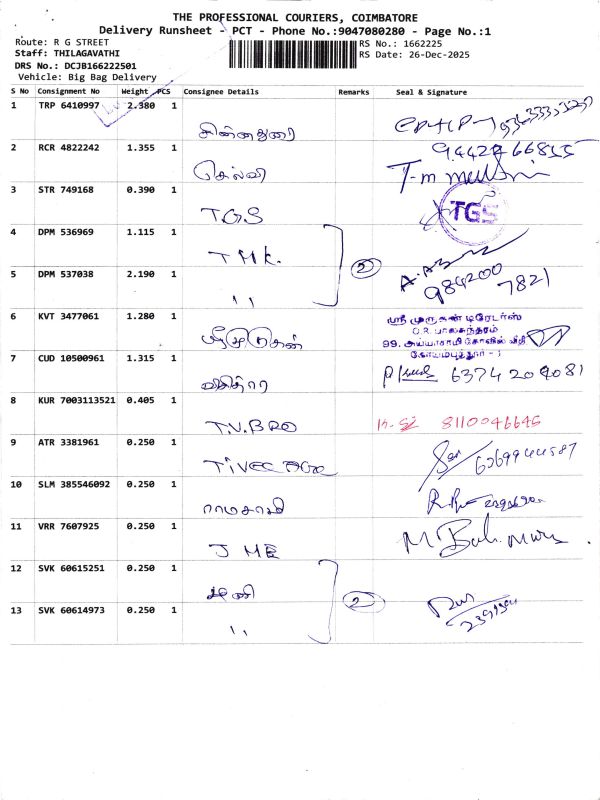 THE PROFESSIONAL COURIERS, COIMBATORE
Delivery Runsheet - PCT - Phone No.:9047080280 - Page No.:1
Route: R G STREET
Staff: THILAGAVATHI
DRS No.: DCJB166222501
Vehicle: Big Bag Delivery
RS No.: 1662225
RS Date: 26-Dec-2025
S No Consignment No Weight PCS Consignee Details Remarks Seal & Signature
1 TRP 6410997 2.380 1 சின்னதுரை
2 RCR 4822242 1.355 1 செல்வி
3 STR 749168 0.390 1 TGS TGS
4 DPM 536969 1.115 1 TMK. 2
5 DPM 537038 2.190 1 ,, 984200 7821
6 KVT 3477061 1.280 1
ஸ்ரீ முருகன் டிரேடர்ஸ்
O.R. பாலசுந்தரம்
99, அய்யாசாமி கோவில் வீதி
கோயமுத்தூர் - 1
7 CUD 10500961 1.315 1 6374209081
8 KUR 7003113521 0.405 1 T.V.BRO 8110046645
9 ATR 3381961 0.250 1
10 SLM 385546092 0.250 1 ராமசாமி
11 VRR 7607925 0.250 1 J ME
12 SVK 60615251 0.250 1 மணி 2
13 SVK 60614973 0.250 1 ,,